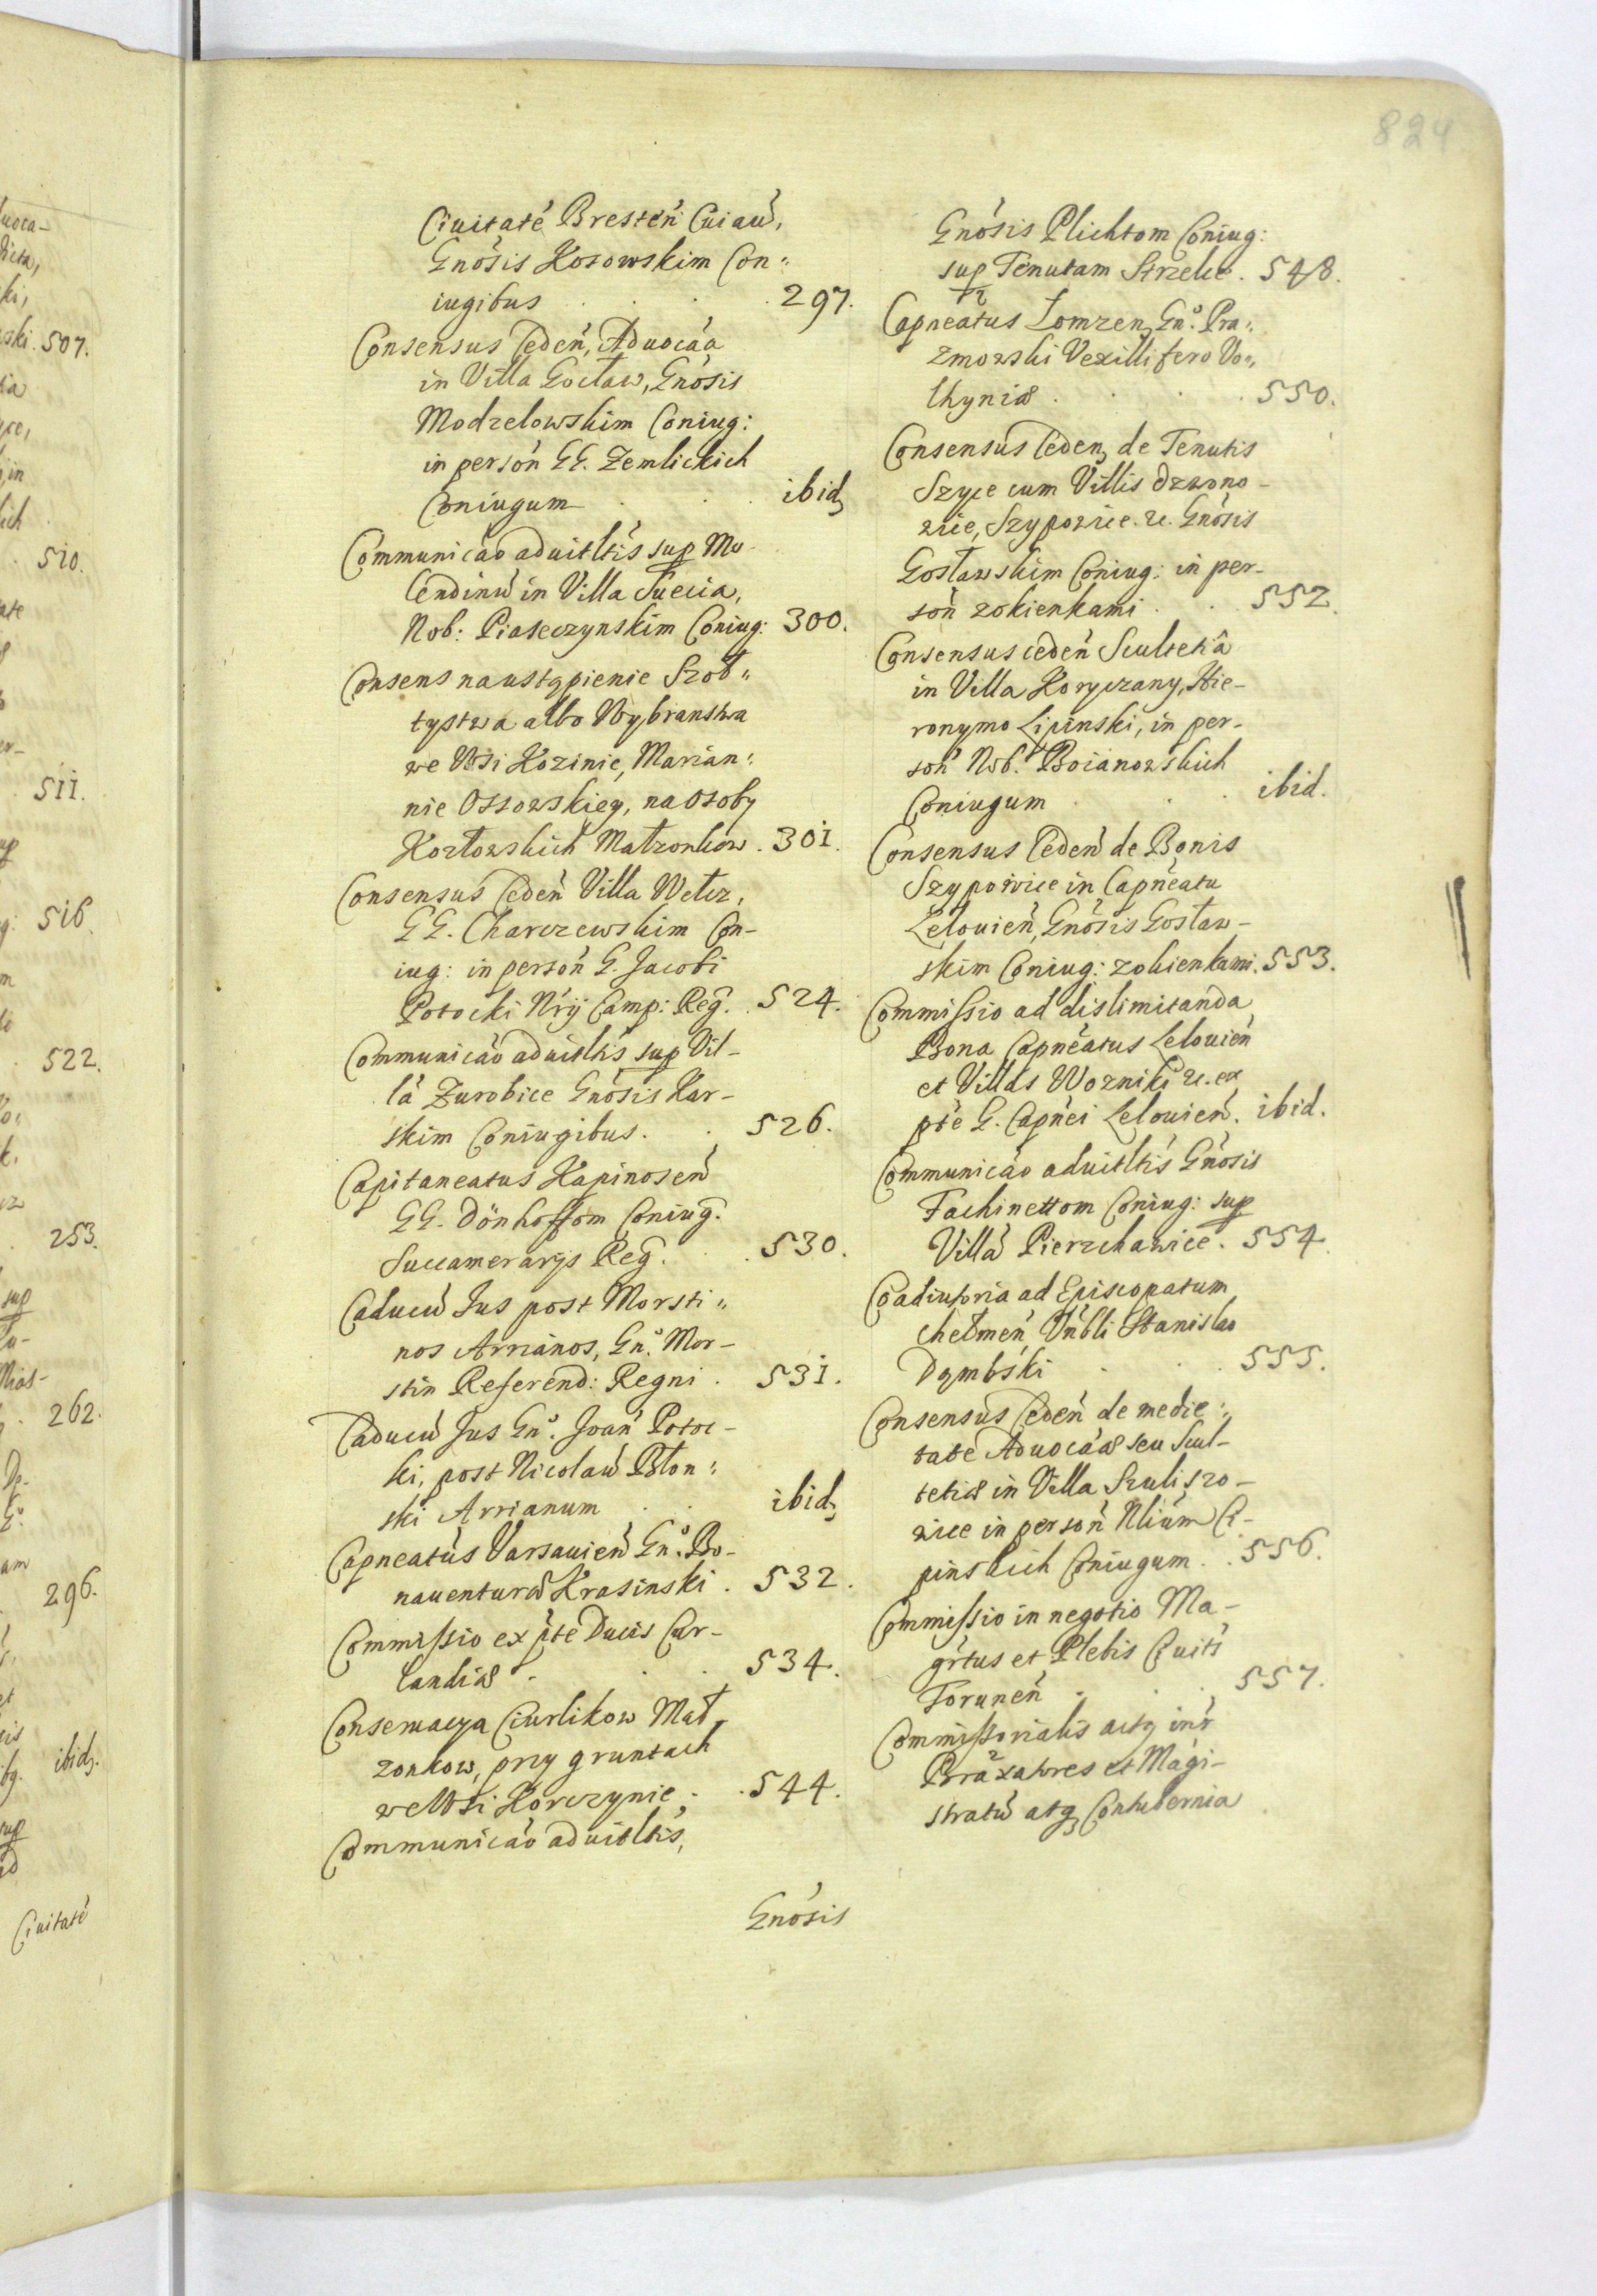 824
Ciuitatē Bresteń Cuiaw̄,
Gnosis Kosowskim Con„
iugibus . . . 297.
Consensus Cedeń, Aduocaã
in Villa Gocław, Gnosis
Modzelowskim Coniug:
in persoń GG. Zemlickich
Coniugum . . ibidȝ
Communicaõ aduitltis sup Mo-
lendinū in Villa Suecia,
Nob: Piaseczynskim Coniug: 300.
Consens na ustąpienie Szoł„
tystwa albo Wybranstwa
we Wsi Kozinie, Marian„
nie Ossowskiey, na Osoby
Kozłowskich Małzonkow . 301.
Consensus Cedeń Villa Welcz,
GG. Charczewskim Con-
iug: in persoń G. Jacobi
Potocki Nrij Camp: Reg. . 524.
Communicaõ aduitltis sup Vil-
lã Zurobice Gnosis Kar-
skim Coniugibus. . 526.
Capitaneatus Kapinoseń
GG. Dönhoffom Coniug.
Succamerarys Reg. . 530.
Caducū Jus post Morsti„
nos Arrianos, Gn° Mor-
stin Referend: Regni . 531.
Caducū Jus Gn° Joań Potoc-
ki, post Nicolaū Błon„
ski Arrianum . . ibidȝ
Capneatus Varsauień Gn° Bo-
nauenturæ Krasinski . 532.
Commissio ex pte Ducis Cur-
landiæ . . . 534.
Conserwacya Ciurlikow Mał-
zonkow, przy gruntach
we Wsi Korczynie . . 544.
Communicaõ aduitltis,
Gnosis
Gnosis Plichtom Coniug:
sup Tenutam Strzelce . 548.
Capneatus Lomzenȝ Gn° Pra„
zmowski Vexillifero Vo„
lhyniæ . . . 550.
Consensus Cedenȝ de Tenutis
Szyce cum Villis Dzwono-
wice, Szypowice. &c. Gnosis
Gosławskim Coniug: in per-
soń zokienkami . . 552.
Consensus cedeń Scultetiâ
in Villa Koryczany, Hie-
ronymo Lipinski, in per-
soń Nob. Boianowskich
Coniugum . . . ibid.
Consensus Cedeń de Bonis
Szypowice in Capneatu
Lelouień, Gnosis Gosław-
skim Coniug: zokienkami. 553.
Commissio ad dislimitanda
Bona Capneatus Lelouień
et Villas Wozniki &c. ex
pte G. Capnei Lelouień. ibid.
Communicaõ aduitltis Gnosis
Fachinettom Coniug: sup
Villā Pierzchawice . 554.
Coadiutoria ad Episcopatum
Chełmeń, Vnbli Stanislao
Dąmbski . . . 555.
Consensus Cedeń de medie„
tate Aduocaæ seu Scul-
tetiæ in Villa Szuliszo-
wice in persoń Nlium Ci-
pinskich Coniugum . . 556.
Commissio in negotio Ma-
grtus et Plebis Ciuits
Toruneń . . . 557.
Commissorialis actȝ intr
Praxatores et Magi-
stratū atqȝ Contubernia
507.
510.
511.
516.
522.
253.
262.
296.
ibidȝ.
Ciuitatē